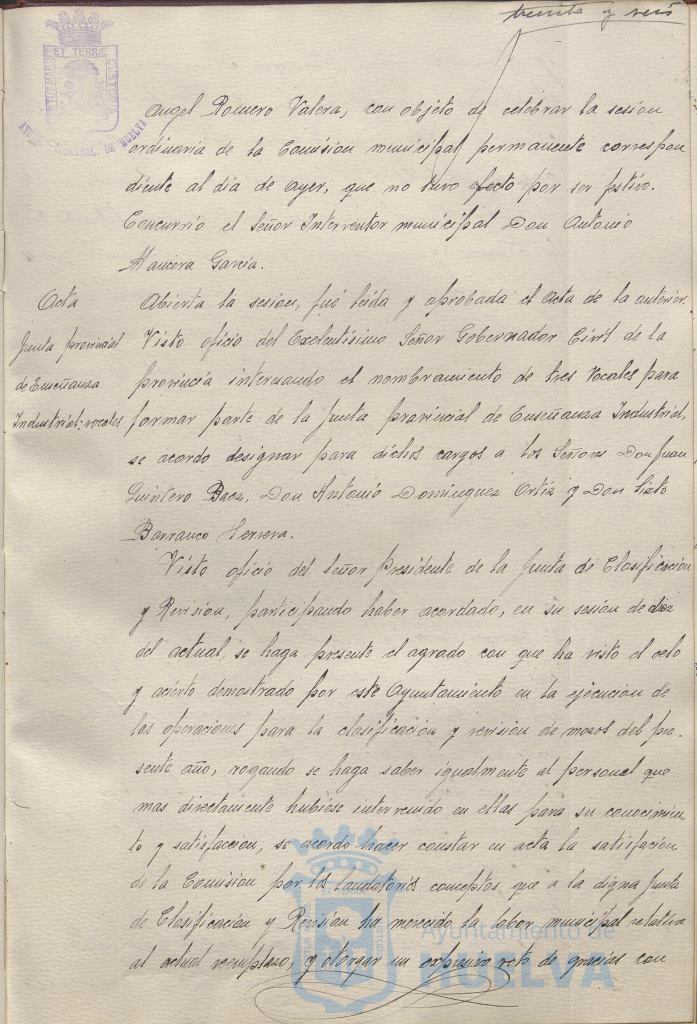 treinta y seis
Angel Romero Valera, con objeto de celebrar la sesion
ordinaria de la Comision municipal permanente correspon
diente al dia de ayer, que no tuvo efecto por ser festivo.
Concurrió el Señor Interventor municipal Don Antonio
Mancera Garcia.
Acta
Abierta la sesion, fué leida y aprobada el Acta de la anterior.
Junta provincial
de Enseñanza
Industrial: vocales
Visto oficio del Exelentisimo Señor Gobernador Civil de la
provincia interesando el nombramiento de tres Vocales para
formar parte de la Junta provincial de Enseñanza Industrial,
se acordo designar para dichos cargos a los Señores Don Juan
Quintero Baez, Don Antonio Dominguez Ortiz y Don Sixto
Barranco
Visto oficio del Señor Presidente de la Junta de Clasificación
y Revision, participando haber acordado, en su sesion de diez
del actual, se haga presente el agrado con que ha visto el celo
y acierto demostrado por este Ayuntamiento en la ejecucion de
las operaciones para la clasificación y revision de mozos del pre-
sente año, rogando se haga saber igualmente al personal que
mas directamente hubiese intervenido en ellas para su conocimien
to y satisfaccion, se acordo hacer constar en acta la satisfación
de la Comision por los laudatorios conceptos que a la digna Junta
de Clasificacion y Revisión ha merecido la labor municipal relativa
al actual reemplazo, y otorgar un expresivo voto de gracias con
Ayuntamiento de
HUELVA